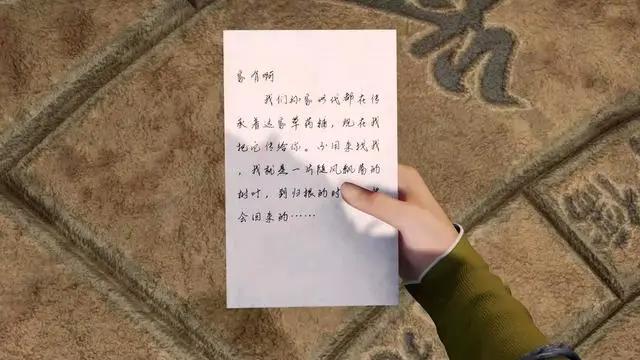 家啊
我们孙家世代都在传
承着这家草药铺，现在我
把它传给你。不来找我
，我就是一片随风飘荡的
树叶，到归根的时
会回来的……